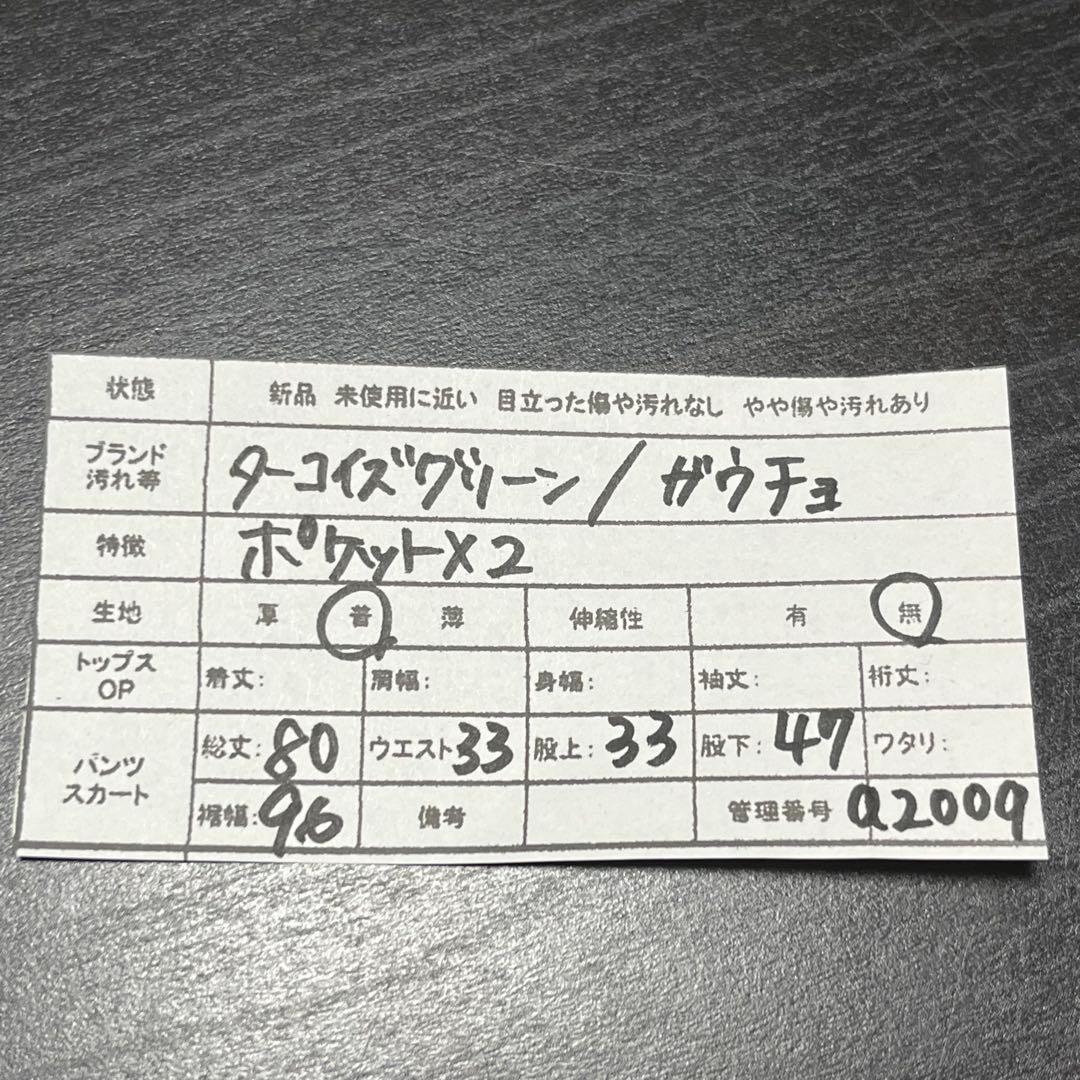 状態 新品 未使用に近い 目立った傷や汚れなし やや傷や汚れあり
ブランド
汚れ等 ターコイズグリーン/ガウチョ
特徴 ポケット×2
生地 厚 普 薄 伸縮性 有 無
トップス
OP 着丈: 肩幅: 身幅: 袖丈: 裄丈:
パンツ
スカート 総丈:80 ウエスト33 股上:33 股下:47 ワタリ:
裾幅:96 備考 管理番号 a2009